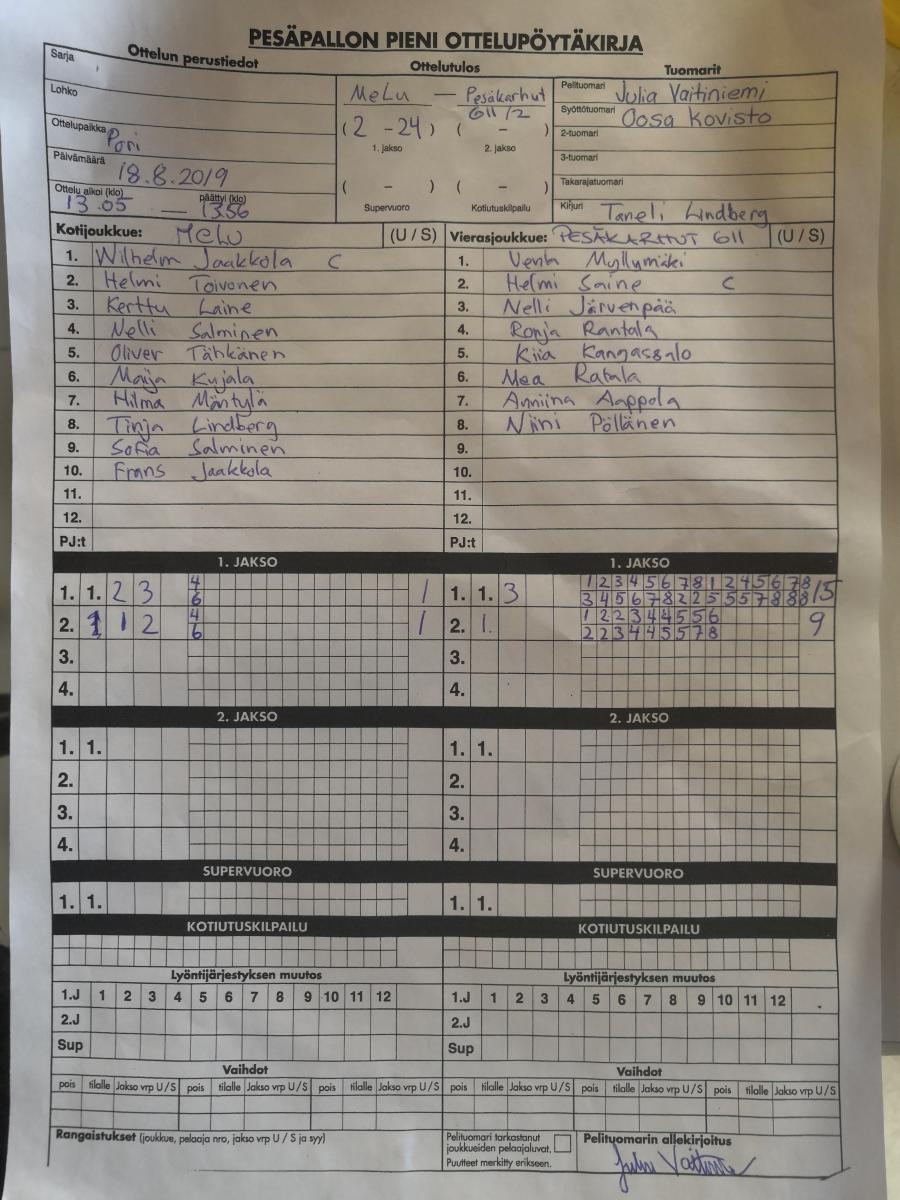 PESÄPALLON PIENI OTTELUPÖYTÄKIRJA
Ottelun perustiedot Ottelutulos Tuomarit
Sarja
Lohko
Ottelupaikka Pori
Päivämäärä 18.8.2019
Ottelu alkoi (klo) päättyi (klo)
13.05 — 13.56
MeLu — Pesäkarhut
G11/2
(2 - 24) ( - )
1. jakso 2. jakso
( - ) ( - )
Supervuoro Kotiutuskilpailu
Pelituomari Julia Vaitiniemi
Syöttötuomari Oosa Kovisto
2-tuomari
3-tuomari
Takarajatuomari
Kirjuri Taneli Lindberg
Kotijoukkue: MeLU (U / S) Vierasjoukkue: PESÄKARHUT G11 (U / S)
1. Wilhelm Jaakkola C 1. Venla Myllymäki
2. Helmi Toivonen 2. Helmi Saine C
3. Kerttu Laine 3. Nelli Järvenpää
4. Nelli Salminen 4. Ronja Rantala
5. Oliver Tähkänen 5. Kiia Kangassalo
6. Maija Kujala 6. Mea Ratala
7. Hilma Mäntylä 7. Anniina Aappola
8. Tinja Lindberg 8. Niini Pöllänen
9. Sofia Salminen 9.
10. Frans Jaakkola 10.
11. 11.
12. 12.
PJ:t PJ:t
1. JAKSO 1. JAKSO
1. 1. 2 3 4 1 1. 1. 3 1 2 3 4 5 6 7 8 1 2 4 5 6 7 8 15
6 3 4 5 6 7 8 2 2 5 5 5 7 8 8 8
2. 1 2 4 1 2. 1. 1 2 2 3 4 4 5 5 6 9
6 2 2 3 4 4 5 5 7 8
3. 3.
4. 4.
2. JAKSO 2. JAKSO
1. 1. 1. 1.
2. 2.
3. 3.
4. 4.
SUPERVUORO SUPERVUORO
1. 1. 1. 1.
KOTIUTUSKILPAILU KOTIUTUSKILPAILU
Lyöntijärjestyksen muutos Lyöntijärjestyksen muutos
1.J 1 2 3 4 5 6 7 8 9 10 11 12 1.J 1 2 3 4 5 6 7 8 9 10 11 12
2.J 2.J
Sup Sup
Vaihdot Vaihdot
pois tilalle Jakso vrp U / S pois tilalle Jakso vrp U / S pois tilalle Jakso vrp U / S pois tilalle Jakso vrp U / S pois tilalle Jakso vrp U / S pois tilalle Jakso vrp U / S
Rangaistukset (joukkue, pelaaja nro, jakso vrp U / S ja syy)
Pelituomari tarkastanut
joukkueiden pelaajaluvat.
Puutteet merkitty erikseen.
Pelituomarin allekirjoitus